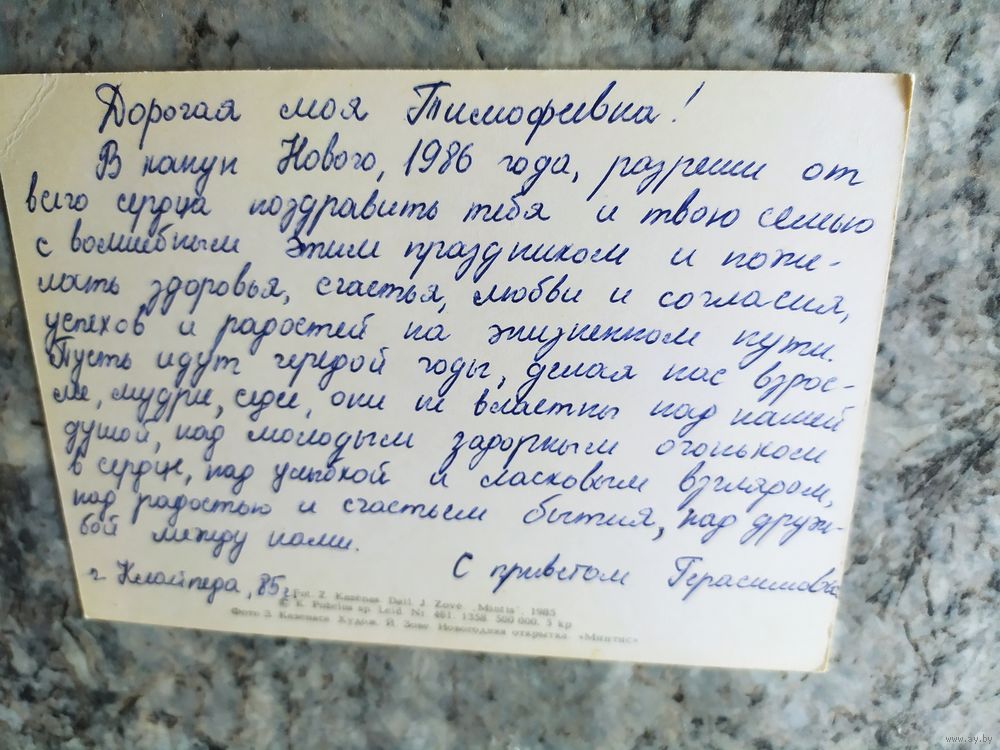 Дорогая моя Тимофеевна!
В канун Нового, 1986 года, разреши от
всего сердца поздравить тебя и твою семью
с волшебным этим праздником и поже-
лать здоровья, счастья, любви и согласия,
успехов и радостей на жизненном пути.
Пусть идут чередой годы, делая нас взрос-
лее, мудрее, седее, они не властны над нашей
душой, над молодым задорным огоньком
в сердце, над улыбкой и ласковым взглядом,
над радостью и счастьем бытия, над друж-
бой между нами.
С приветом Герасимовы
г. Клайпеда, 85г.
Fot. Z. Kazėnas Dail. J. Zovė „Mintis“, 1985
© K. Požėlos sp. Leid. Nr. 461. 1358 500 000. 5 kp
Фото З. Казенаса Худож. Й. Зове Новогодняя открытка «Минтис»
www.ay.by